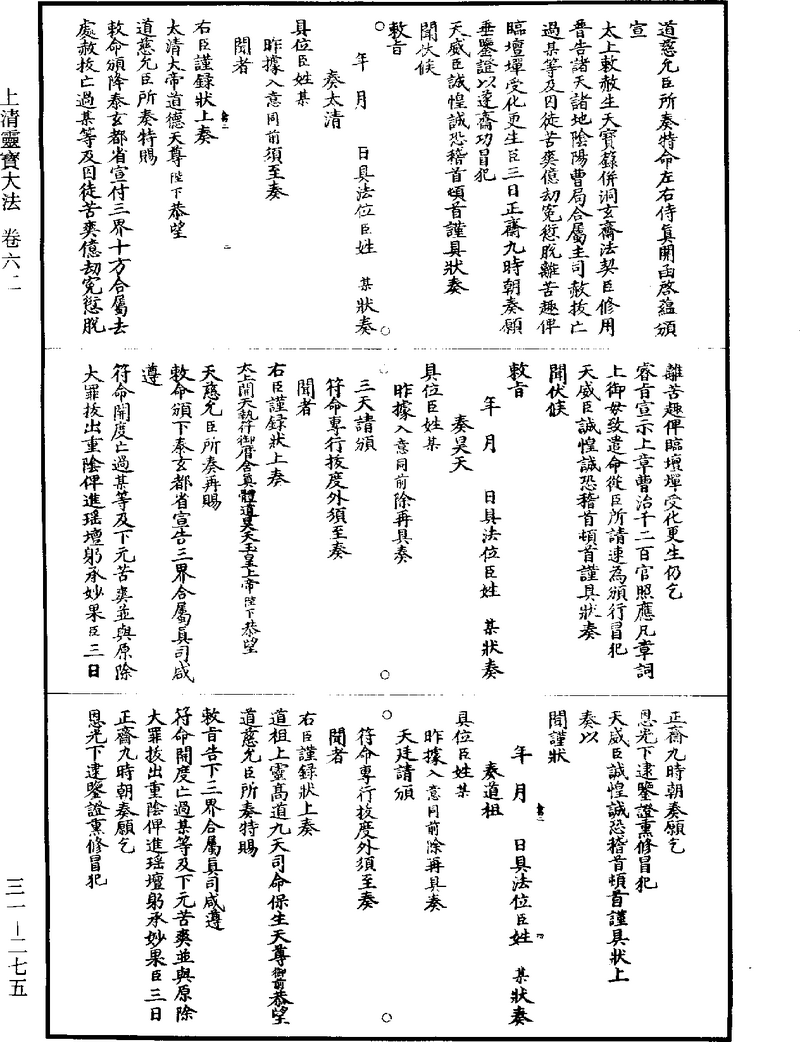 道慈允臣所奏特命左右侍真開函啓蘊頒
宣
太上敕赦生天寶籙併洞玄齋法契臣修用
普告諸天諸地陰陽曹局合屬主司赦拔亡
過某等及囚徒苦爽億劫寃愆脫離苦趣俾
臨壇墠受化更生臣三日正齋九時朝奏願
垂鑒證以逹齋功冒犯
天威臣誠惶誠恐稽首頓首謹具狀奏
聞伏候
敕旨
年 月 日具法位臣姓 某狀奏
奏太清
具位臣姓某
昨據入意同前須至奏
聞者
右臣謹録狀上奏
太清大帝道德天尊陛下恭望
道慈允臣所奏特賜
敕命頒降泰玄都省宣付三界十方合屬去
處赦拔亡過某等及囚徒苦爽億劫寃愆脫
離苦趣俾臨壇墠受化更生仍乞
睿旨宣示上章曹治千二百官照應凡章詞
上御毋致遣命從臣所請速為頒行冒犯
天威臣誠惶誠恐稽首頓首謹具狀奏
聞伏候
敕旨
年 月 日具法位臣姓 某狀奏
奏昊天
具位臣姓某
昨據入意同前除再具奏
三天請頒
符命專行拔度外須至奏
聞者
右臣謹録狀上奏
太上開天執符御曆含真體道昊天玉皇上帝陛下恭望
天慈允臣所奏再賜
敕命頒下泰玄都省宣告三界合屬真司咸
遵
符命開度亡過某等及下元苦爽並與原除
大罪拔出重陰俾進瑶壇躬承妙果臣三日
正齋九時朝奏願乞
恩光下逮鑒證熏修冒犯
天威臣誠惶誠恐稽首頓首謹具狀上
奏以
聞謹狀
年 月 日具法位臣姓 某狀奏
奏道祖
具位臣姓某
昨據入意同前除再具奏
天廷請頒
符命專行拔度外須至奏
聞者
右臣謹録狀上奏
道祖上靈高道九天司命保生天尊御前恭望
道慈允臣所奏特賜
敕旨告下三界合屬真司咸遵
符命開度亡過某等及下元苦爽並與原除
大罪拔出重陰俾進瑶壇躬承妙果臣三日
正齋九時朝奏願乞
恩光下逮鑒證熏修冒犯
上清靈寶大法 卷六二
三一－二七五